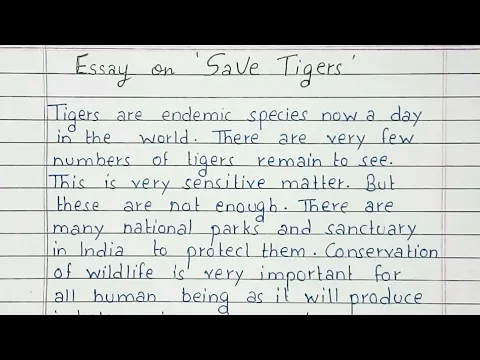 Essay on 'Save Tigers'
Tigers are endemic species now a day
in the world. There are very few
numbers of tigers remain to see.
This is very sensitive matter. But
these are not enough. There are
many national parks and sanctuary
in India to protect them. Conservation
of wildlife is very important for
all human being as it will produce